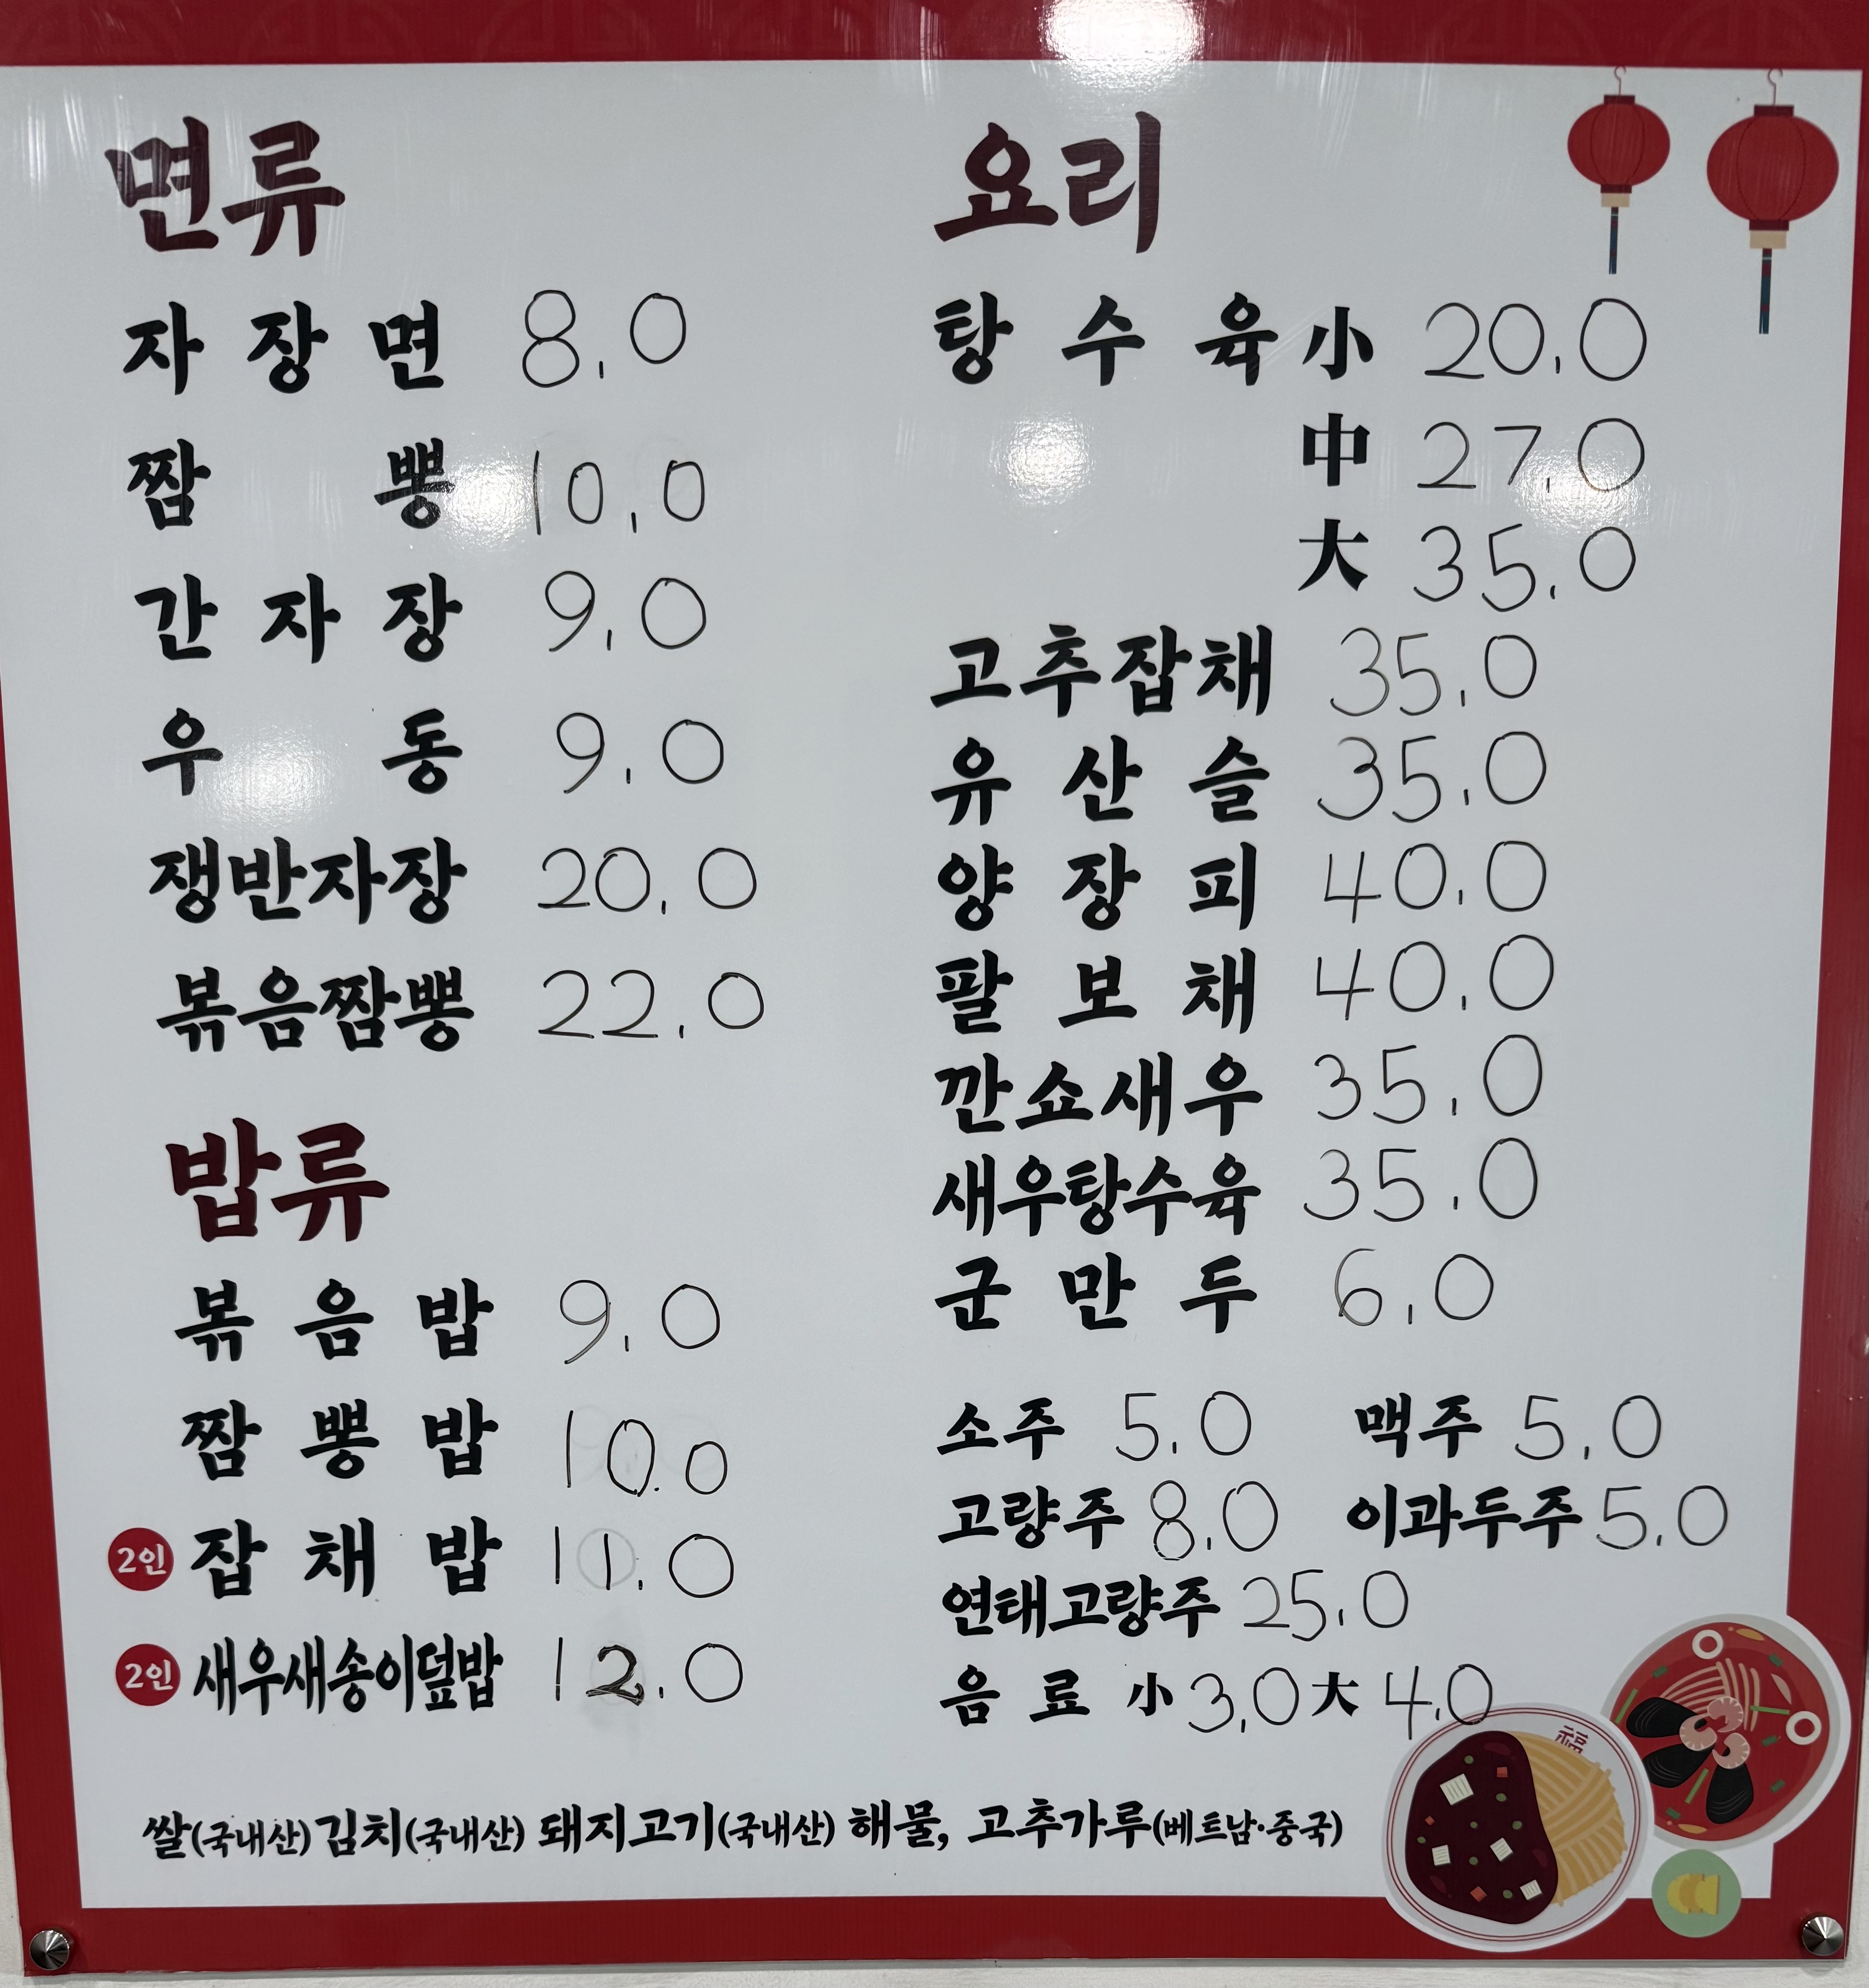 면류
자장면 8.0
짬뽕 10.0
간자장 9.0
우동 9.0
쟁반자장 20.0
볶음짬뽕 22.0
밥류
볶음밥 9.0
짬뽕밥 10.0
2인 잡채밥 11.0
2인 새우새송이덮밥 12.0
요리
탕수육 小 20.0
中 27.0
大 35.0
고추잡채 35.0
유산슬 35.0
양장피 40.0
팔보채 40.0
깐쇼새우 35.0
새우탕수육 35.0
군만두 6.0
소주 5.0 맥주 5.0
고량주 8.0 이과두주 5.0
연태고량주 25.0
음료 小 3.0 大 4.0
쌀(국내산) 김치(국내산) 돼지고기(국내산) 해물, 고추가루(베트남·중국)
福